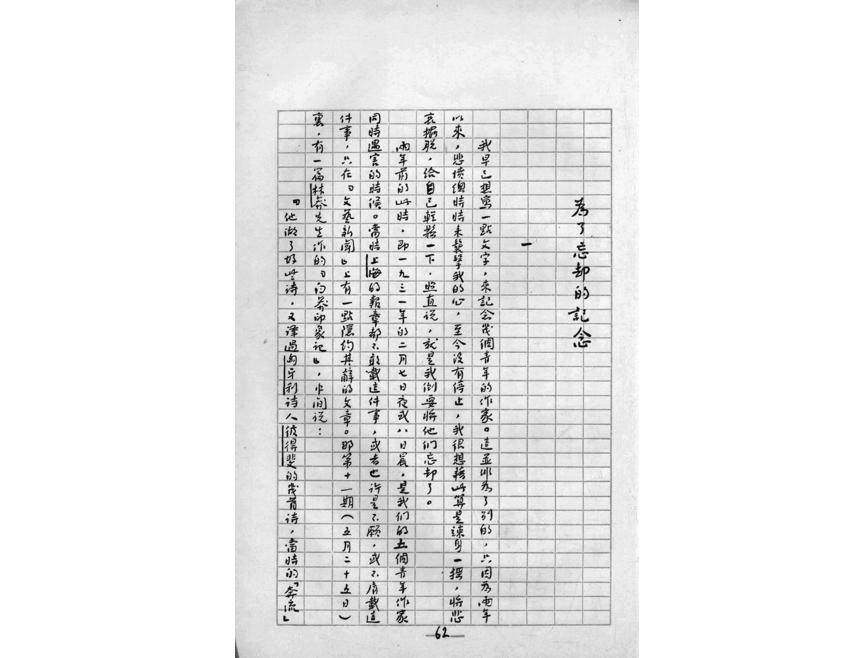 為了忘却的記念
一
我早已想寫一點文字，來記念幾個青年的作家。這並非為了別的，只因為兩年
以來，悲憤總時時來襲擊我的心，至今沒有停止，我很想藉此算是竦身一搖，將悲
哀擺脫，給自己輕鬆一下，照直说，就是我倒要將他們忘却了。
兩年前的此時，即一九三一年的二月七日夜或八日晨，是我們的五個青年作家
同時遇害的時候。當時上海的報章都不敢載這件事，或者也许是不願，或不屑載這
件事，只在『文藝新聞』上有一點隱約其辭的文章。那第十一期（五月二十五日）
裏，有一篇林莽先生作的『白莽印象記』，中间说：
『他做了好些诗，又譯過匈牙利诗人彼得斐的幾首诗，當時的「奔流」
62